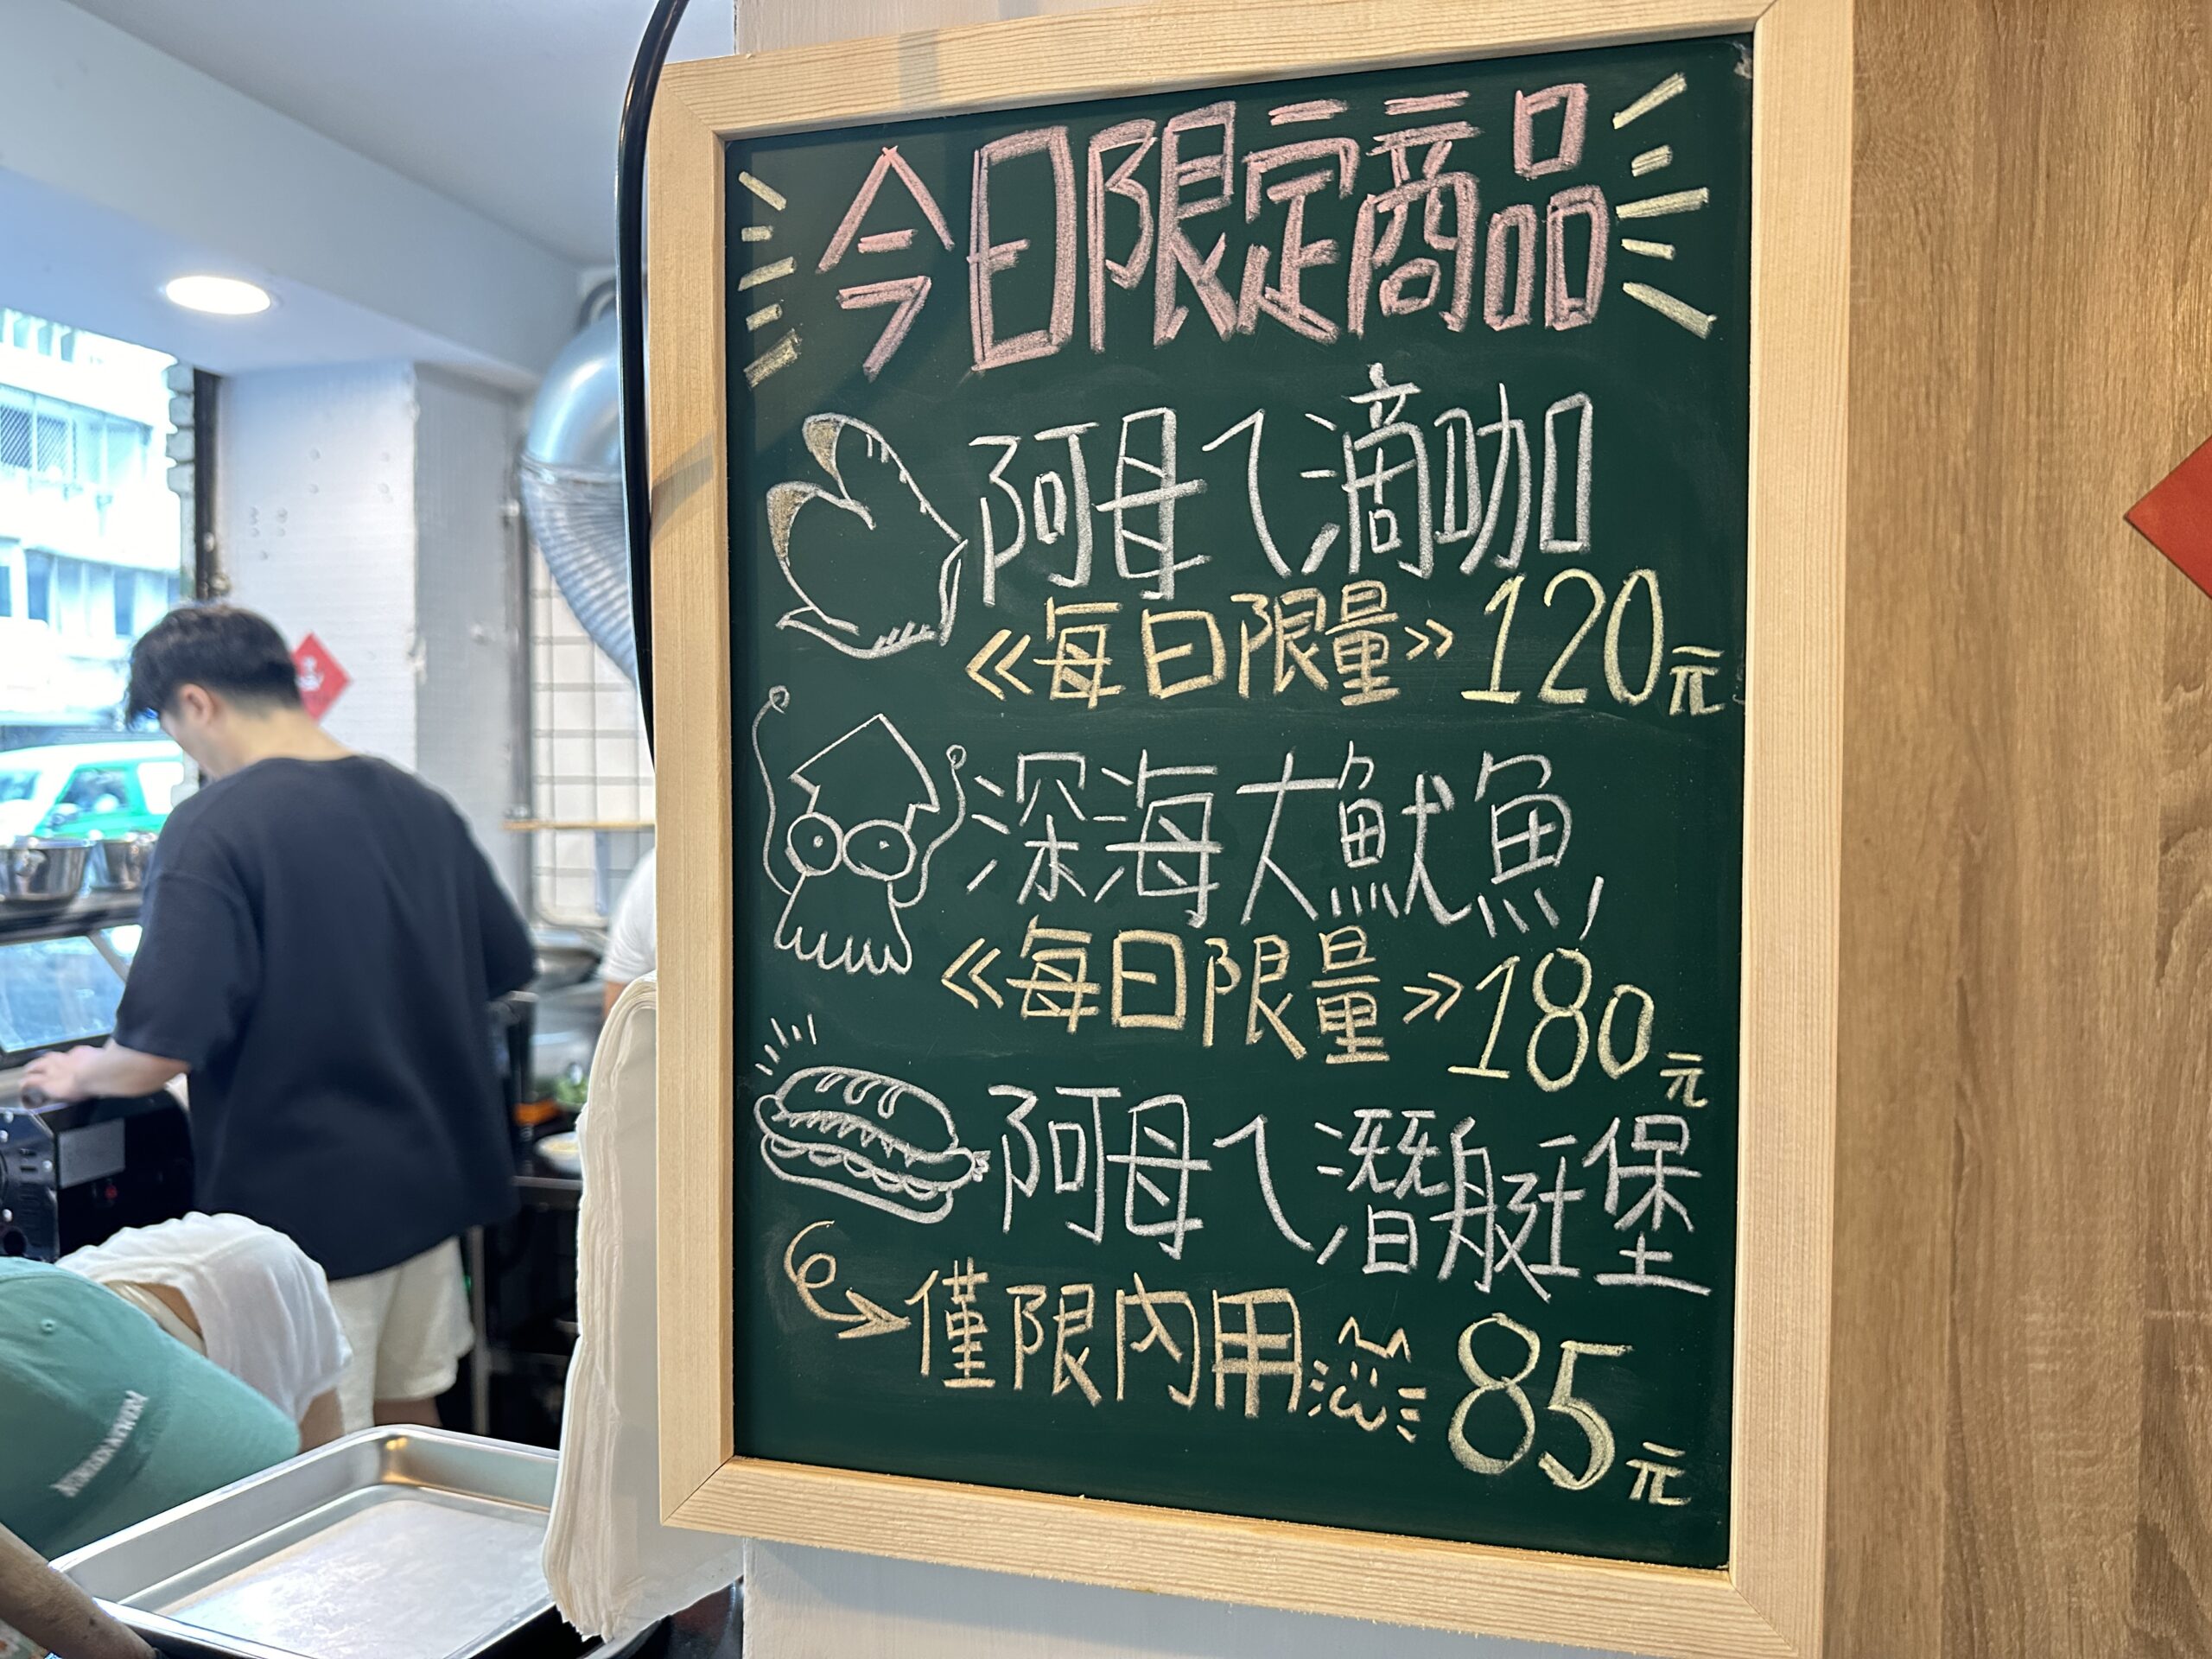 今日限定商品
阿母ㄟ滴咖
《每日限量》120元
深海大魷魚
《每日限量》180元
阿母ㄟ潛艇堡
僅限內用 85元